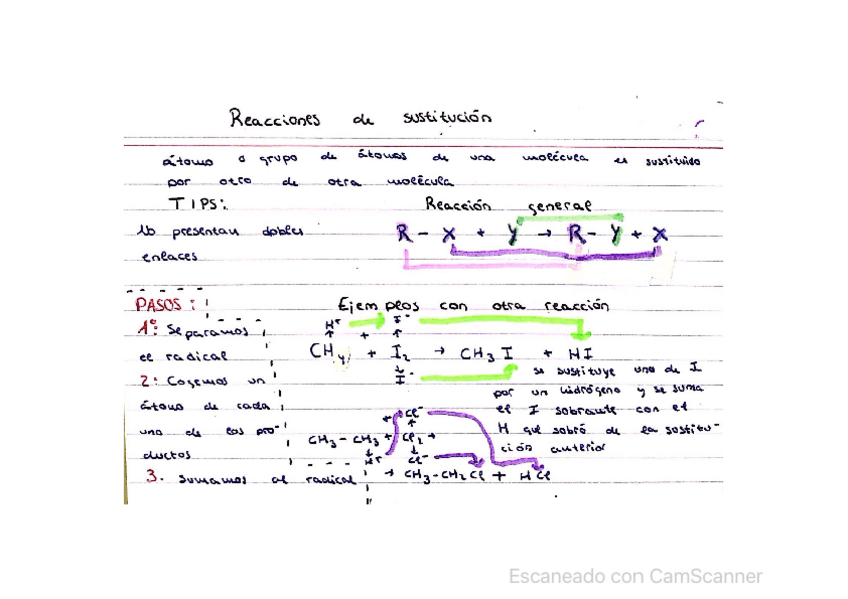 Reacciones de sustitución
átomo o grupo de átomos de una molécula es sustituido
por otro de otra molécula
TIPS:
No presentan dobles
enlaces
Reacción general
R - X + Y → R - Y + X
PASOS:
1º: Separamos
el radical
2: Cogemos un
átomo de cada
uno de los pro-
ductos
3. Sumamos al radical
Ejemplos con otra reacción
H⁺ I⁻
CH4 + I2 → CH3 I + HI
I⁻
se sustituye uno de I
por un hidrógeno y se suma
el I sobrante con el
H que sobró de la sustitu-
ción anterior
Cl⁻
CH3-CH3 + Cl2 +
H⁺ Cl⁻
→ CH3-CH2Cl + HCl
Escaneado con CamScanner